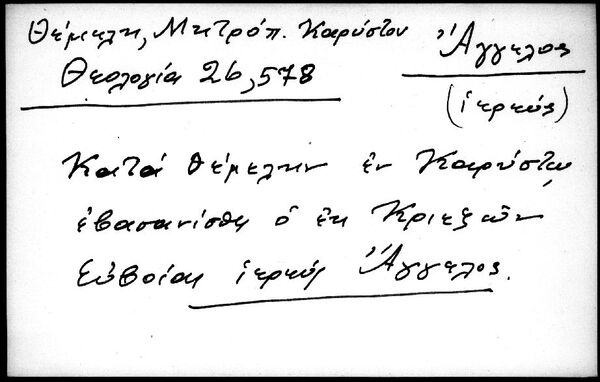 Θέμελη, Μητρόπ. Καρύστου
Ἄγγελος
Θεολογία 26, 578
(ἱερεύς)
Κατά Θέμελην ἐν Καρύστῳ
ἐβασανίσθη ὁ ἐκ Κριεζῶν
Εὐβοίας ἱερεύς Ἄγγελος.